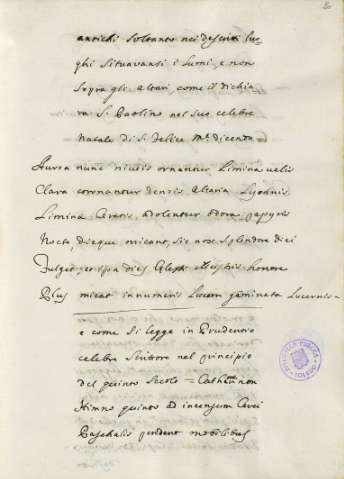 antichi soltanto nei descritti luo-
ghi situavansi i Lumi, e non
sopra gli altari, come il dichia
ra S. Paolino nel suo celebre
natale di S. Felice dicendo
Aurea nunc niveis ornantur Limina velis
Clara coronantur densis altaria Lychnis
Limina Ceratis adolentur odora papyris
Nocte dieque micant, sic nox splendore diei
Fulget, et ipsa dies illustris honore
Plus micat innumeris Lucem geminata Lucernis
e come si legge in Prudenzio
celebre Scrittore nel principio
del quinto Secolo =
Himno quinto ad incensum Cerei
Paschalis pendent mobilibus
BIBLIOTECA PUBLICA
TOLEDO